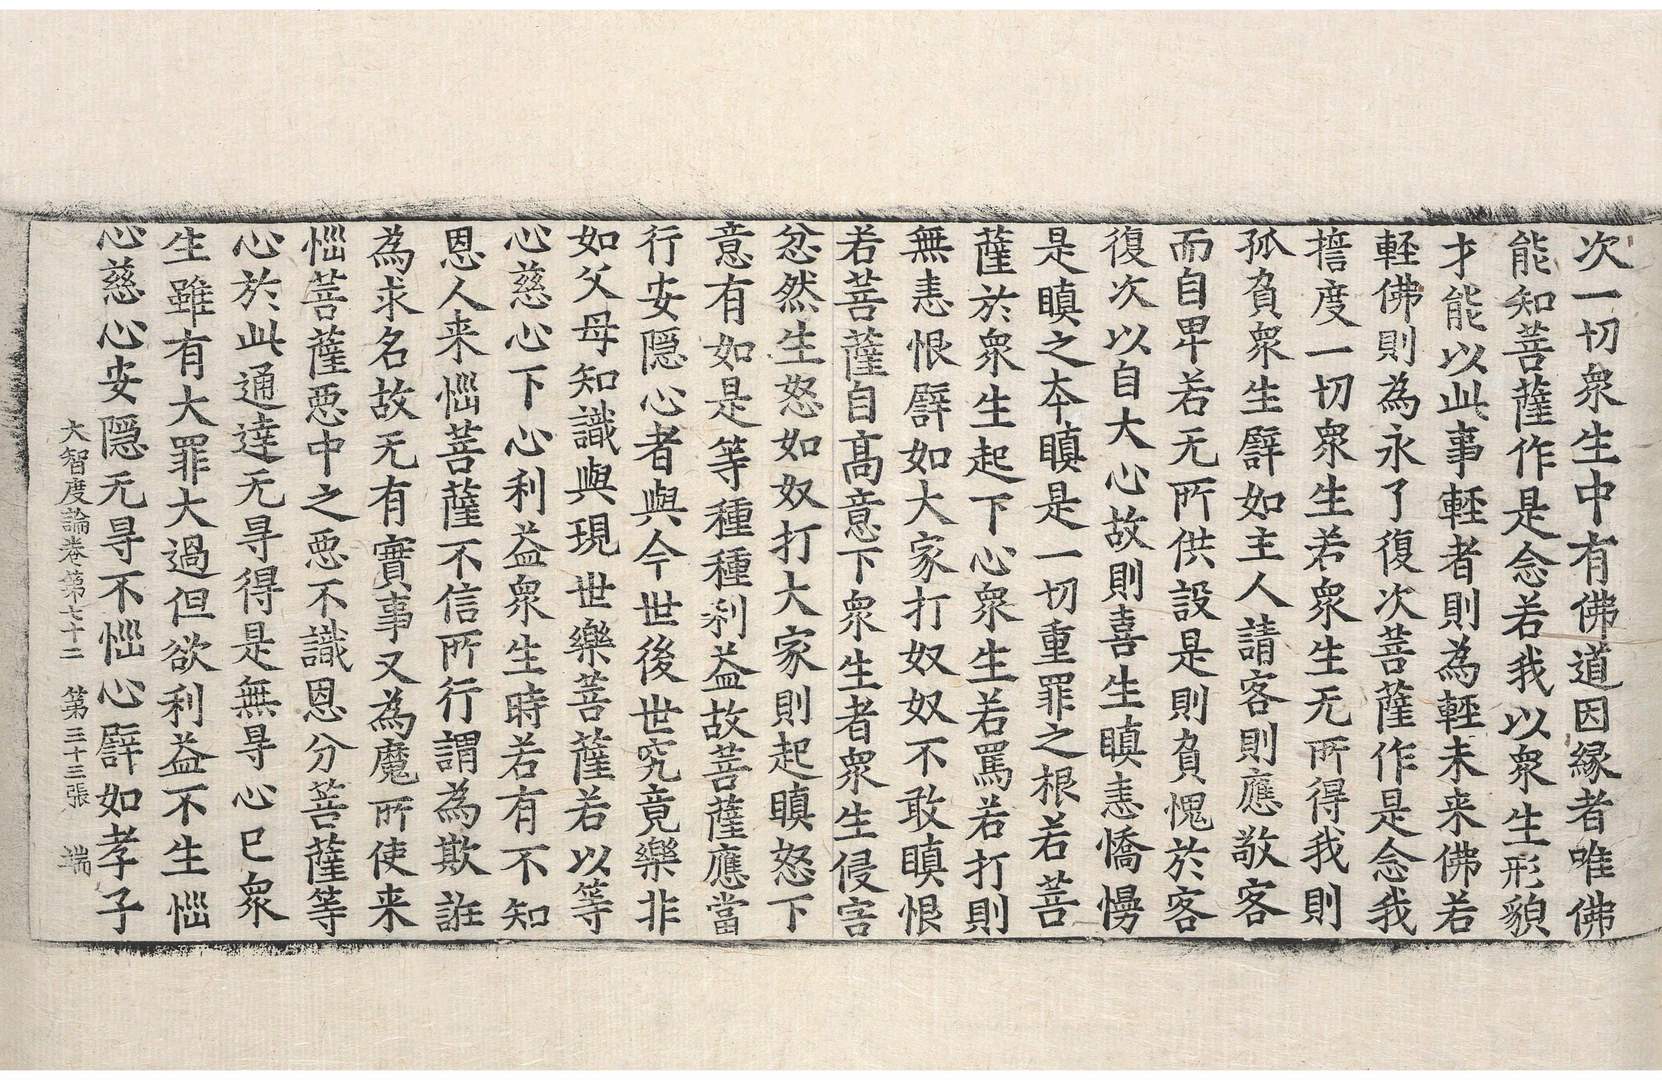 次一切衆生中有佛道因縁者唯佛
能知菩薩作是念若我以衆生形貌
才能以此事輕者則為輕未来佛若
輕佛則為永了復次菩薩作是念我
擔度一切衆生若衆生无所得我則
孤負衆生譬如主人請客則應敬客
而自卑若无所供設是則負愧於客
復次以自大心故則喜生瞋恚憍慢
是瞋之本瞋是一切重罪之根若菩
薩於衆生起下心衆生若罵若打則
無恚恨譬如大家打奴奴不敢瞋恨
若菩薩自髙意下衆生者衆生侵害
忿然生怒如奴打大家則起瞋怒下
意有如是等種種利益故菩薩應當
行安隱心者與今世後世究竟樂非
如父母知識與現世樂菩薩若以等
心慈心下心利益衆生時若有不知
恩人来惱菩薩不信所行謂為欺誑
為求名故无有實事又為魔所使来
惱菩薩惡中之惡不識恩分菩薩等
心於此通達无㝵得是無㝵心已衆
生雖有大罪大過但欲利益不生惱
心慈心安隱无㝵不惱心譬如孝子
大智度論卷第七十二 第三十三張 端